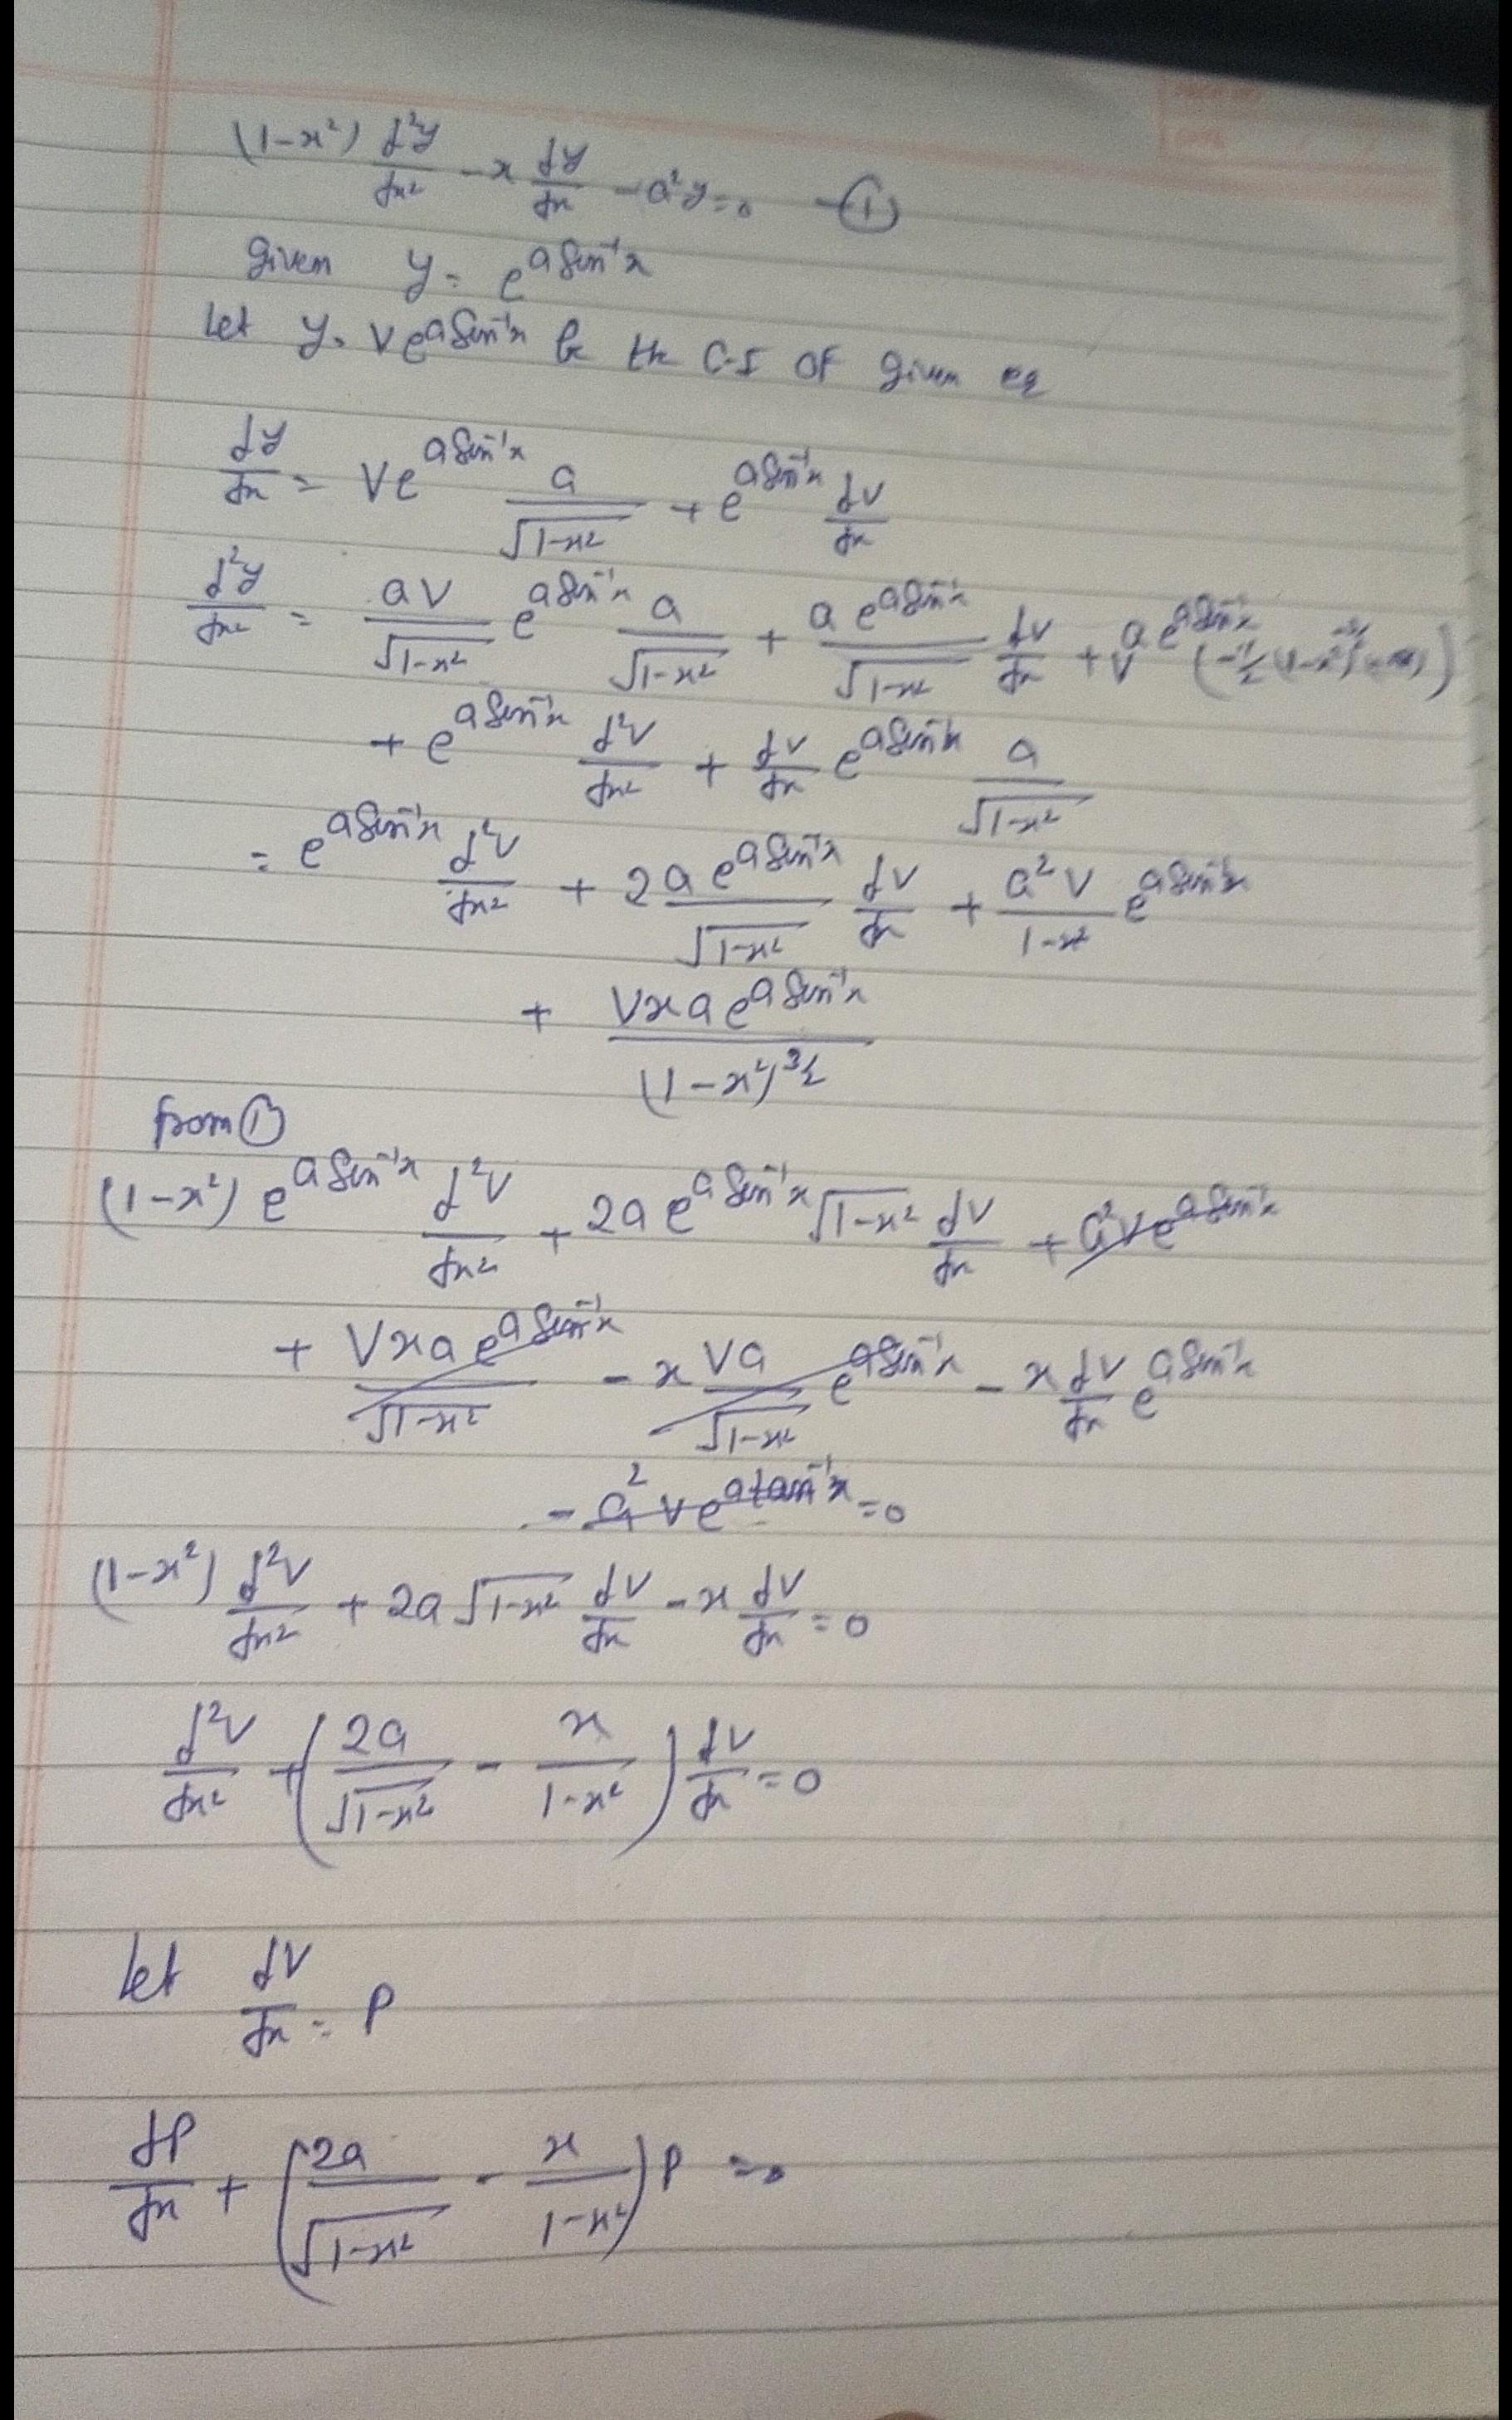 (1-x²) d²y/dx² - x dy/dx - a²y = 0 - ①
Given y = e^{a Sin⁻¹x}
Let y = V e^{a Sin⁻¹x} be the C.S of given eq
dy/dx = V e^{a Sin⁻¹x} a/√(1-x²) + e^{a Sin⁻¹x} dV/dx
d²y/dx² = aV/√(1-x²) e^{a Sin⁻¹x} a/√(1-x²) + a e^{a Sin⁻¹x}/√(1-x²) dV/dx + V a e^{a Sin⁻¹x} (-1/2 (1-x²)^{-3/2} (-2x))
+ e^{a Sin⁻¹x} d²V/dx² + dV/dx e^{a Sin⁻¹x} a/√(1-x²)
= e^{a Sin⁻¹x} d²V/dx² + 2a e^{a Sin⁻¹x}/√(1-x²) dV/dx + a²V/(1-x²) e^{a Sin⁻¹x}
+ Vxa e^{a Sin⁻¹x}/(1-x²)^{3/2}
from ①
(1-x²) e^{a Sin⁻¹x} d²V/dx² + 2a e^{a Sin⁻¹x} √(1-x²) dV/dx + a²V e^{a Sin⁻¹x}
+ Vxa e^{a Sin⁻¹x}/√(1-x²) - x Va/√(1-x²) e^{a Sin⁻¹x} - x dV/dx e^{a Sin⁻¹x}
- a²V e^{a tan⁻¹x} = 0
(1-x²) d²V/dx² + 2a √(1-x²) dV/dx - x dV/dx = 0
d²V/dx² + (2a/√(1-x²) - x/(1-x²)) dV/dx = 0
Let dV/dx = P
dP/dx + (2a/√(1-x²) - x/(1-x²)) P = 0